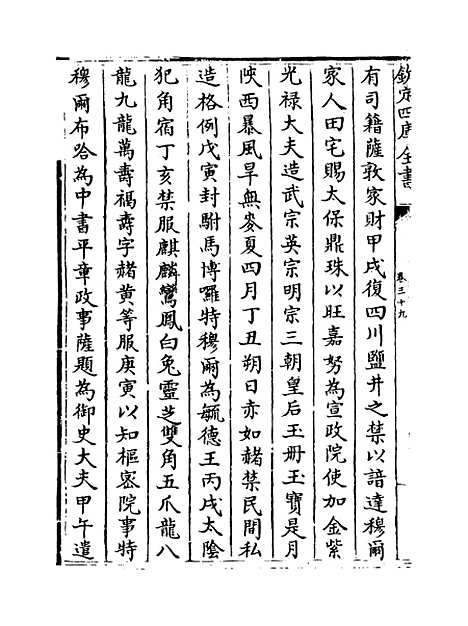 欽定四庫全書
卷三十九
有司籍薩敦家財甲戌復四川鹽井之禁以諳達穆爾
家人田宅賜太保鼎珠以旺嘉努為宣政院使加金紫
光禄大夫造武宗英宗明宗三朝皇后玉冊玉寶是月
陜西暴風旱無麥夏四月丁丑朔日赤如赭禁民間私
造格例戊寅封駙馬博囉特穆爾為毓德王丙戌太陰
犯角宿丁亥禁服麒麟鸞鳳白兔靈芝雙角五爪龍八
龍九龍萬壽福壽字赭黄等服庚寅以知樞宻院事特
穆爾布哈為中書平章政事薩題為御史大夫甲午遣